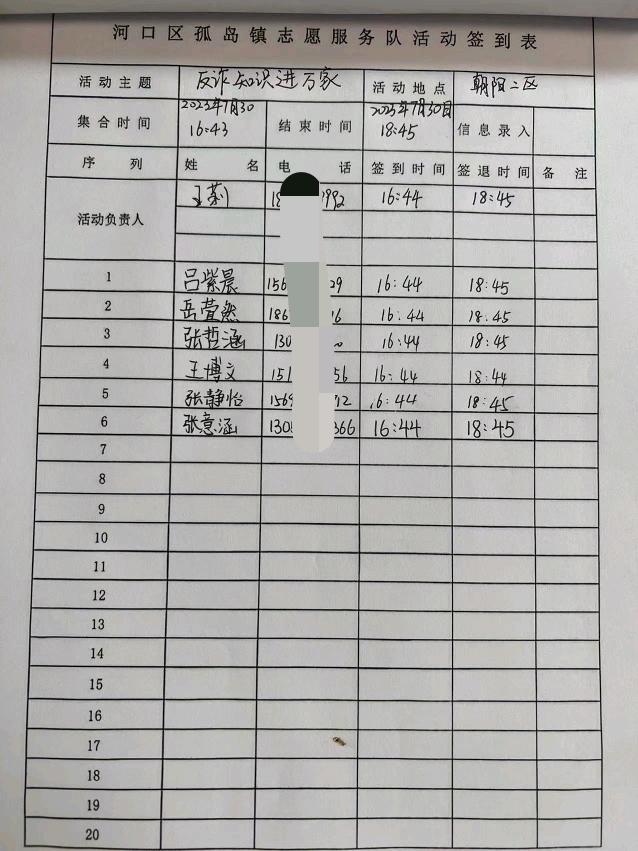 河口区孤岛镇志愿服务队活动签到表
活动主题 反诈知识进万家 活动地点 朝阳二区
集合时间 2023年7月30 16:43 结束时间 2023年7月30日 18:45 信息录入
序列 姓名 电话 签到时间 签退时间 备注
活动负责人 王莉 18 992 16:44 18:45
1 吕紫晨 156 29 16:44 18:45
2 岳萱然 186 16 16.44 18.45
3 张哲涵 130 16:44 18:45
4 王博文 151 56 16:44 18:44
5 张静怡 1569 12 16:44 18:45
6 张意涵 130 366 16:44 18:45
7
8
9
10
11
12
13
14
15
16
17
18
19
20